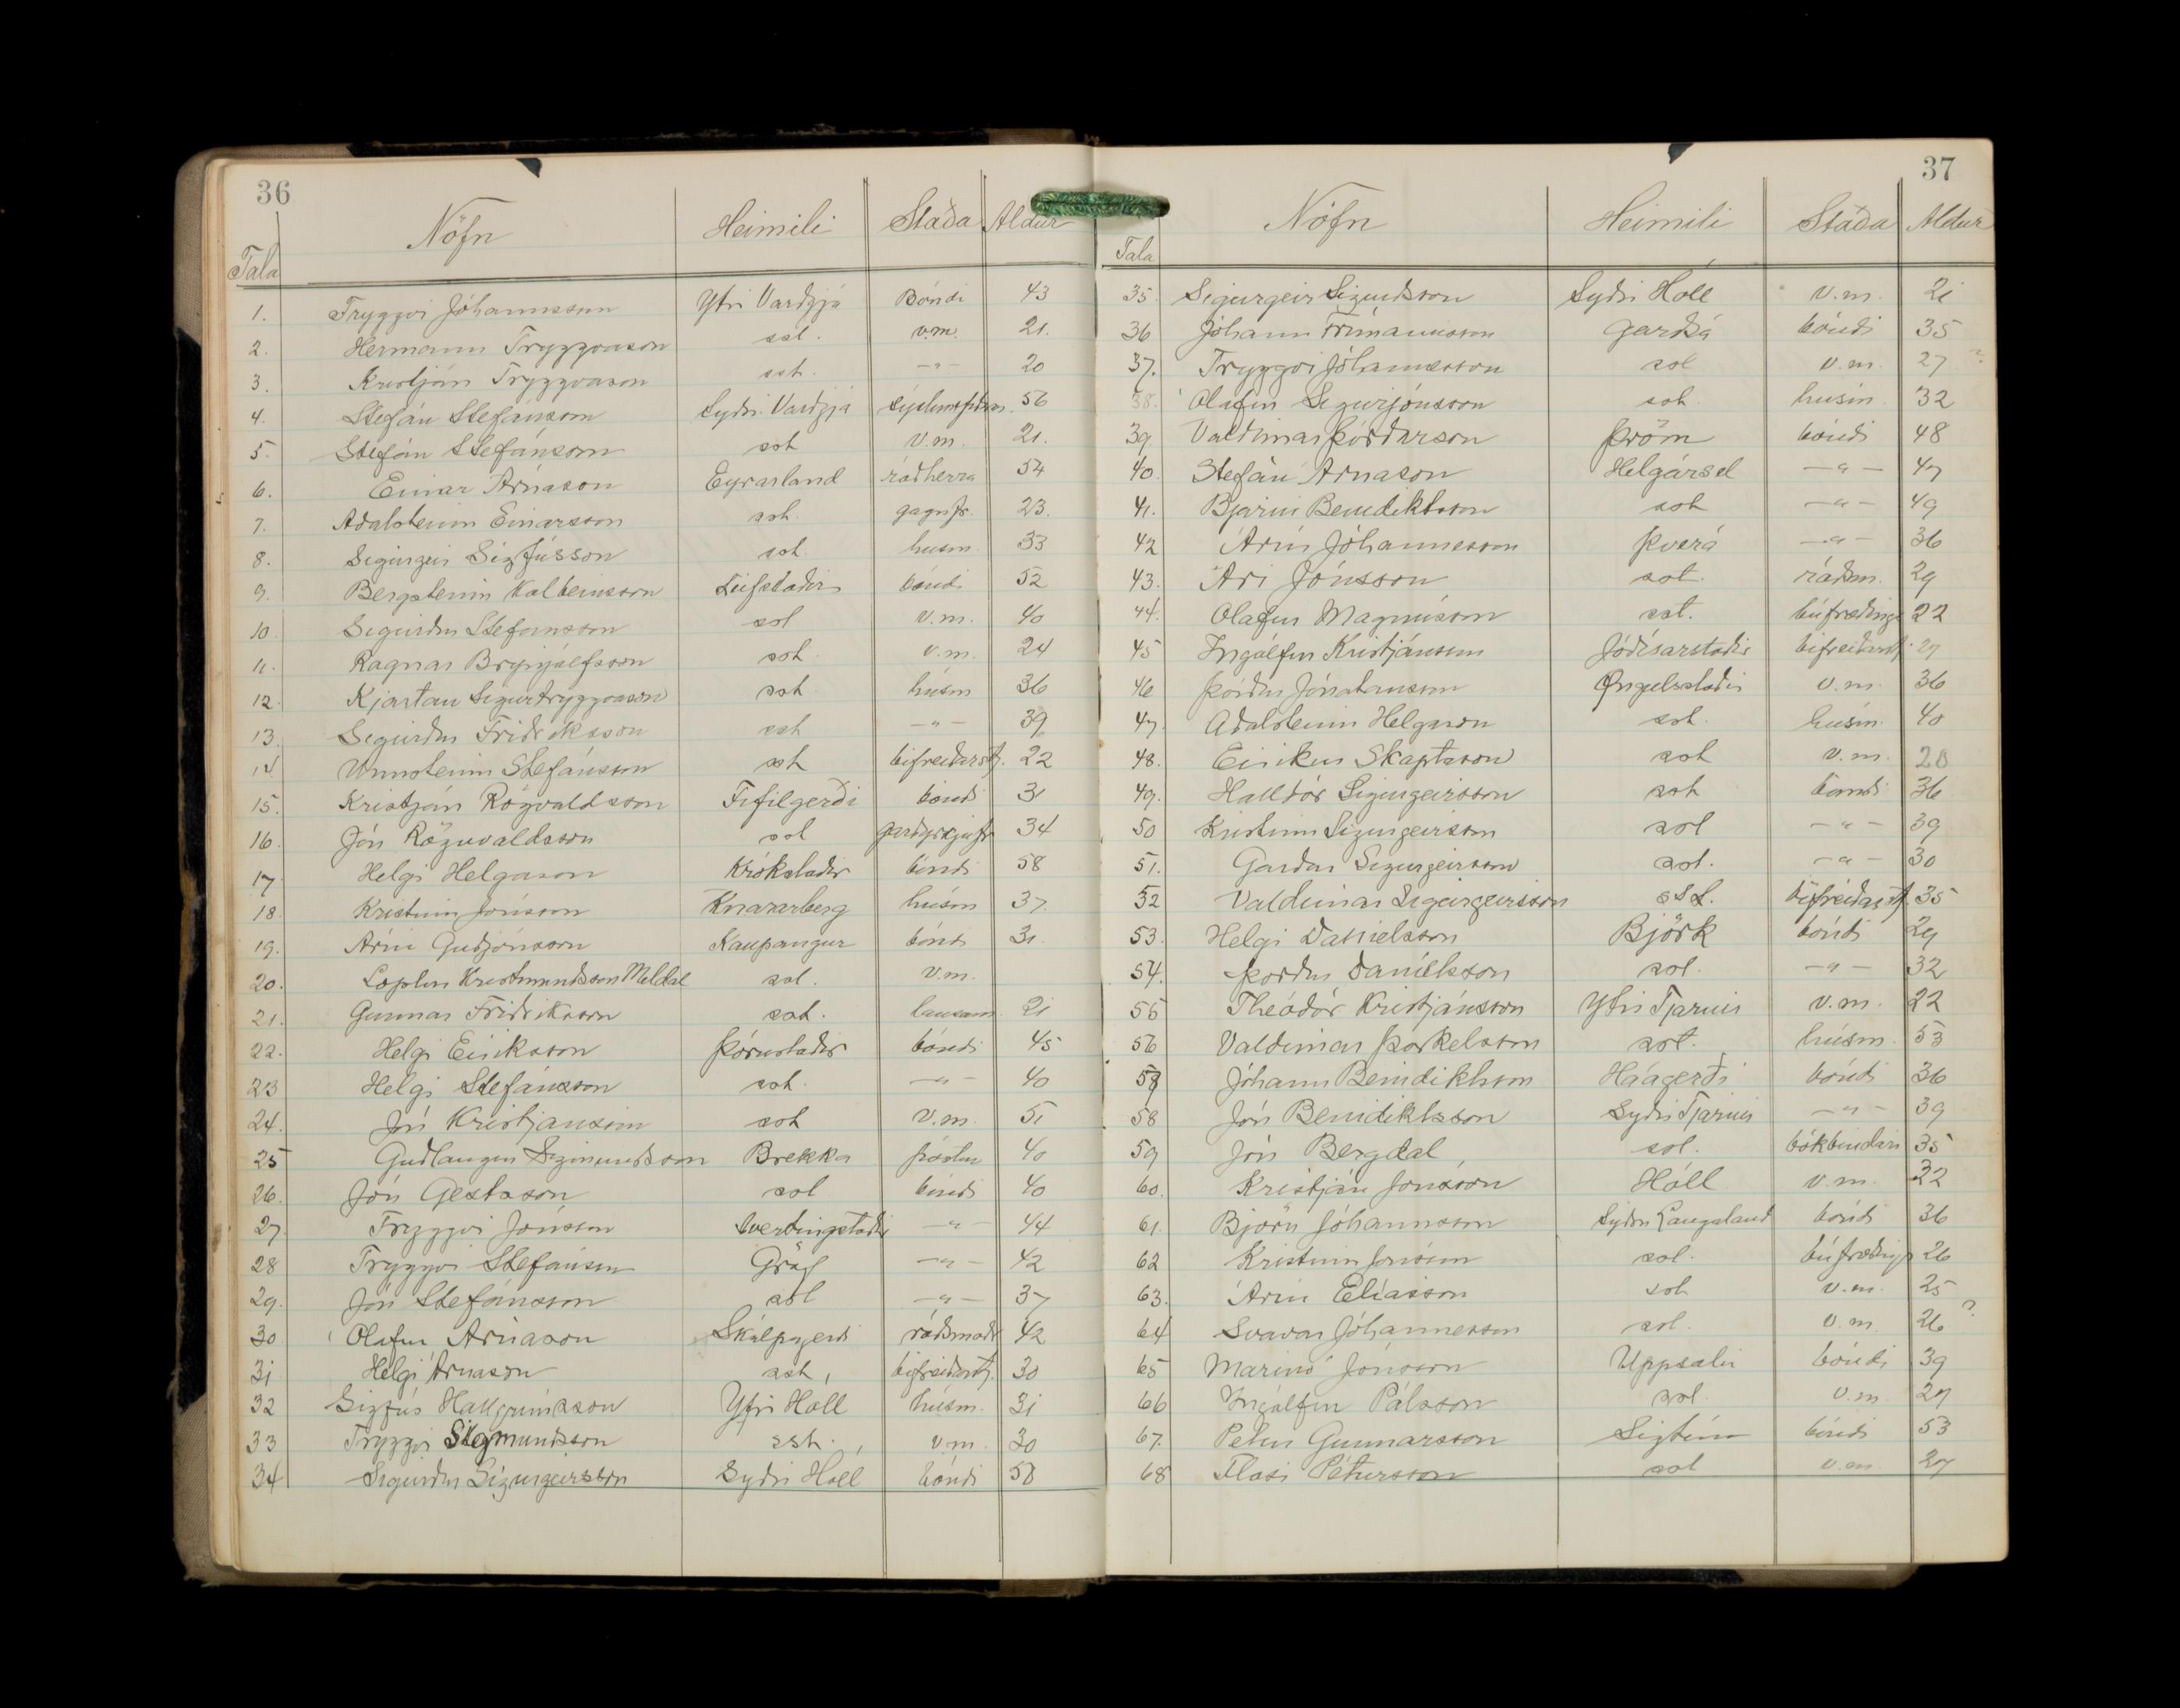 36
Tala Nöfn Heimili Staða Aldur
1. Tryggvi Jóhannsson Ytri Varðgjá Bóndi 43
2. Hermann Tryggvason sst. v.m. 21.
3. Kristján Tryggvason sst. -"- 20
4. Stefán Stefánsson Syðri Varðgjá 56
5. Stefán Stefánsson sst v.m. 21.
6. Einar Árnason Eyrarland ráðherra 54
7. Aðalsteinn Einarsson sst. gagnfr. 23.
8. Sigurgeir Sigfússon sst. húsm. 33
9. Bergsteinn Kolbeinsson Leifsstaðir bóndi 52
10. Sigurður Stefánsson sst v.m. 40
11. Ragnar Brynjólfsson sst. v.m. 24
12. Kjartan Sigurtryggvason sst húsm 36
13. Sigurður Friðriksson sst -"- 39
14 Unnsteinn Stefánsson sst bifreiðarstj. 22
15. Kristján Rögvaldsson Fífilgerði bóndi 31
16. Jón Rögnvaldsson sst garðyrkjufr 34
17 Helgi Helgason Króksstaðir bóndi 58
18. Kristinn Jónsson Knararberg húsm 37
19. Árni Guðjónsson Kaupangur bóndi 31.
20. Loptur Kristmundsson Meldal sst. v.m.
21. Gunnar Friðriksson sst. lausam. 21
22. Helgi Eiríksson Þórustaðir bóndi 45
23 Helgi Stefánsson sst. -"- 40
24. Jón Kristjánsson sst v.m. 51
25 Guðlaugur Sigmundsson Brekka póstur 40
26. Jón Gestsson sst bóndi 40
27 Tryggvi Jónsson Svertingstaðir -"- 44
28 Tryggvi Stefánsson Gröf -"- 42
29. Jón Stefánsson sst -"- 37
30 Ólafur Árnason Skálpagerði ráðsmaðr 42
31 Helgi Árnason sst, bifreiðarstj. 30
32 Sigfús Hallgrímsson Ytri Hóll húsm. 31
33 Tryggvi Sigmundsson sst. v.m. 30
34 Sigurður Sigurgeirsson Syðri Hóll bóndi 58
37
Tala Nöfn Heimili Staða Aldur
35. Sigurgeir Sigurðsson Syðri Hóll v.m. 21
36 Jóhann Frímannsson Garðsá bóndi 35
37. Tryggvi Jóhannesson sst v.m. 27 ?
38. Ólafur Sigurjónsson sst. húsm. 32
39. Valdimar Þórðarson Þröm bóndi 48
40. Stefán Árnason Helgársel -"- 47
41. Bjarni Benediktsson sst -"- 49
42 Árni Jóhannesson Þverá -"- 36
43. Ari Jónsson sst. ráðsm. 29
44. Ólafur Magnússon sst. búfræðingr 22
45 Ingólfur Kristjánsson Jódísarstaðir bifreiðarstj. 29
46 Þórður Jónatansson Öngulsstaðir v.m. 36
47. Aðalsteinn Helgason sst. húsm. 40
48. Eiríkur Skaptason sst v.m. 20
49. Halldór Sigurgeirsson sst bóndi 36
50 Kristinn Sigurgeirsson sst -"- 39
51. Garðar Sigurgeirsson sst. -"- 30
52 Valdimar Sigurgeirsson sst. bifreiðarstj. 35
53. Helgi Daníelsson Björk bóndi 29
54. Þorður Daníelsson sst. -"- 32
55 Theódór Kristjánsson Ytri Tjarnir v.m. 22
56 Valdimar Þorkelsson sst. húsm. 53
57 Jóhann Benediktsson Háagerði bóndi 36
58 Jón Benediktsson Syðri Tjarnir -"- 39
59 Jón Bergdal sst. bókbindari 35
60. Kristján Jónsson Hóll v.m. 32
61. Björn Jóhannsson Syðra Laugaland bóndi 36
62 Kristinn Jónsson sst. búfræðingr 26
63. Árni Elíasson sst v.m. 25
64 Svavar Jóhannesson sst. v.m. 26 ?
65 Marinó Jónsson Uppsalir bóndi 39
66 Ingólfur Pálsson sst. v.m. 29
67. Petur Gunnarsson Sigtún bóndi 53
68 Flosi Pétursson sst v.m. 27